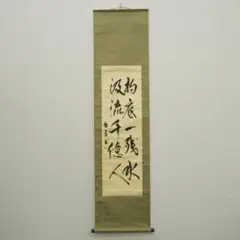 杓底一残水
汲流千億人